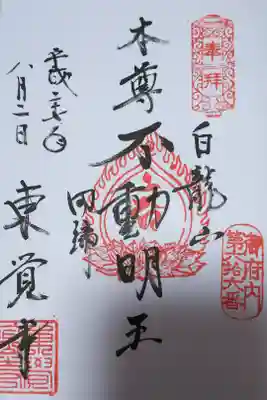 奉拝
白龍山
御府内
本尊不動明王
田端
東覚寺
平成二七年
八月二日